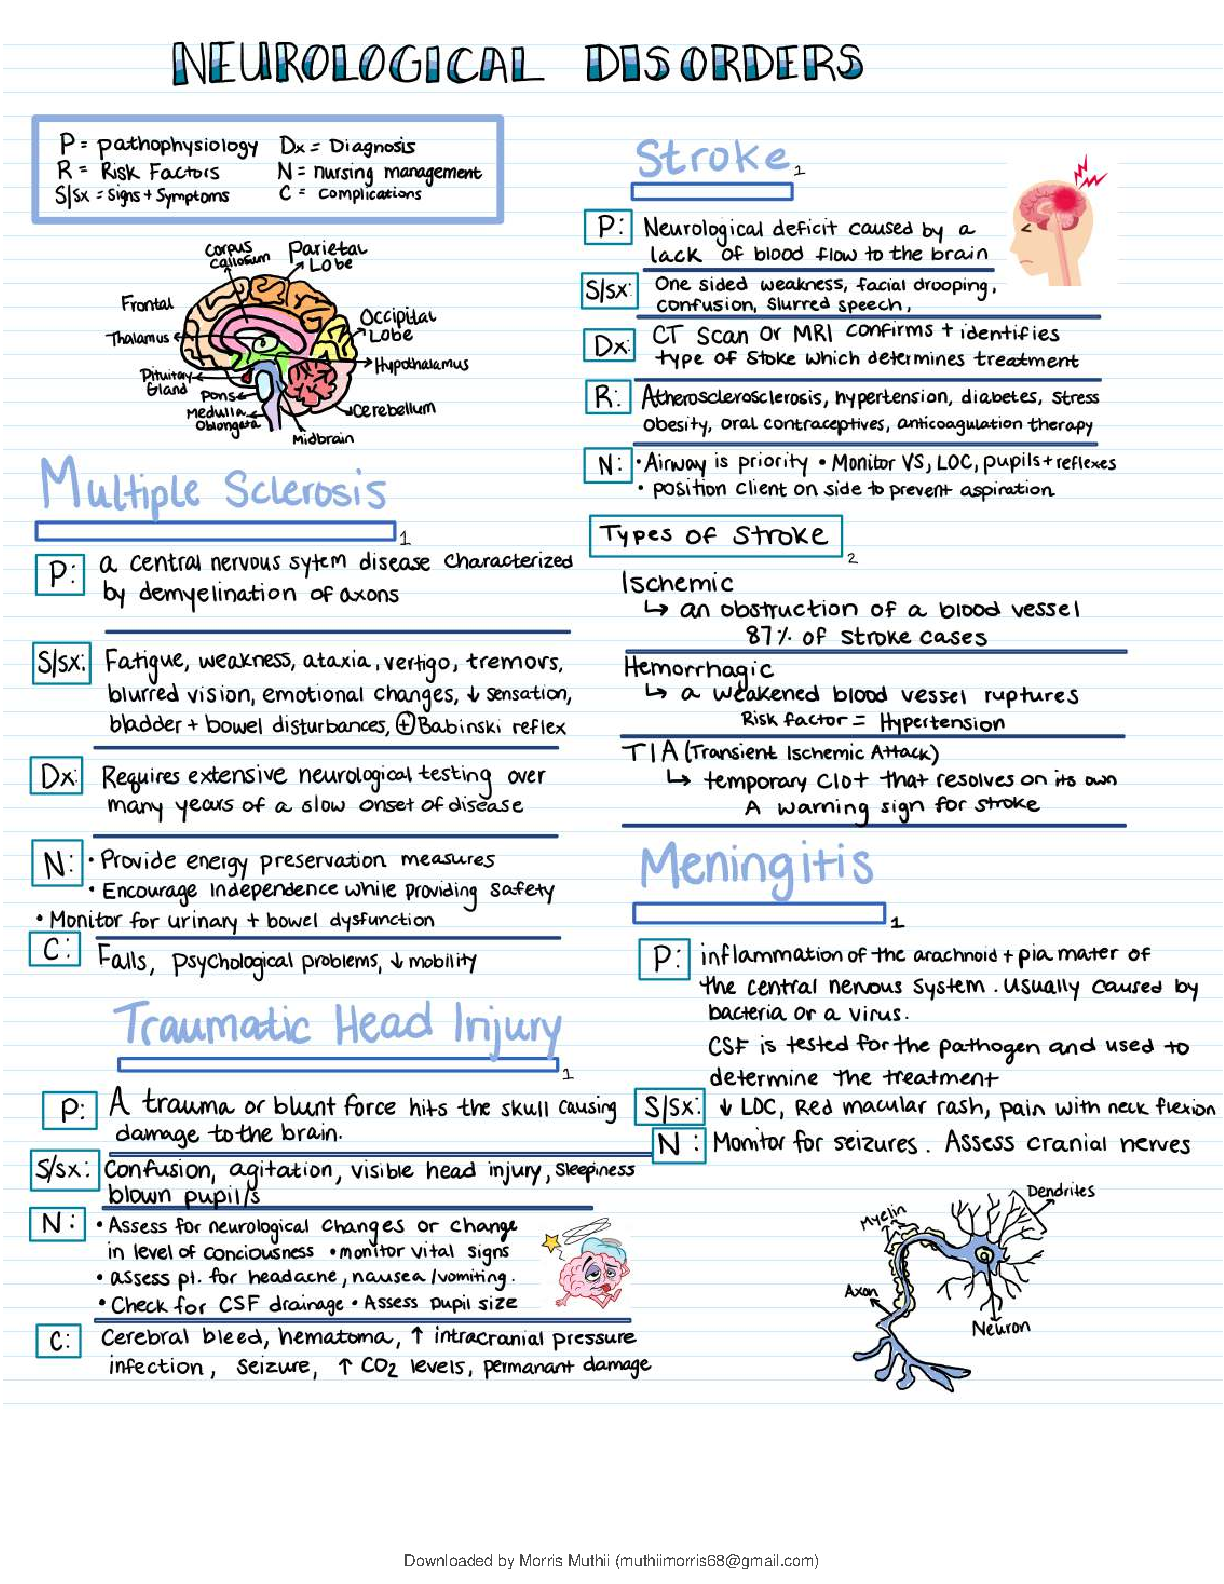 NEUROLOGICAL DISORDERS
P = pathophysiology Dx = Diagnosis
R = Risk Factors N = nursing management
S|Sx = Signs + Symptoms C = complications
Corpus Callosum
Parietal Lobe
Frontal
Thalamus
Occipital Lobe
Hypothalamus
Pituitary Gland
Pons
Medulla Oblongata
Cerebellum
Midbrain
Multiple Sclerosis
1
P: a central nervous sytem disease characterized
by demyelination of axons
S/sx: Fatigue, weakness, ataxia, vertigo, tremors,
blurred vision, emotional changes, ↓ sensation,
bladder + bowel disturbances, ⊕ Babinski reflex
Dx: Requires extensive neurological testing over
many years of a slow onset of disease
N: • Provide energy preservation measures
• Encourage Independence while providing safety
• Monitor for urinary + bowel dysfunction
C: Falls, psychological problems, ↓ mobility
Traumatic Head Injury
1
P: A trauma or blunt force hits the skull causing
damage to the brain.
S/sx: Confusion, agitation, visible head injury, sleepiness
blown pupil/s
N: • Assess for neurological changes or change
in level of conciousness • monitor vital signs
• assess pt. for headache, nausea/vomiting.
• Check for CSF drainage • Assess pupil size
C: Cerebral bleed, hematoma, ↑ intracranial pressure
infection, seizure, ↑ CO2 levels, permanant damage
Stroke
1
P: Neurological deficit caused by a
lack of blood flow to the brain
S/sx: One sided weakness, facial drooping,
confusion, slurred speech,
Dx: CT scan or MRI confirms + identifies
type of stoke which determines treatment
R: Atherosclerosclerosis, hypertension, diabetes, stress
obesity, oral contraceptives, anticoagulation therapy
N: • Airway is priority • Monitor VS, LOC, pupils + reflexes
• position client on side to prevent aspiration
Types of Stroke
2
Ischemic
↳ an obstruction of a blood vessel
87% of stroke cases
Hemorrhagic
↳ a weakened blood vessel ruptures
Risk factor = Hypertension
TIA (Transient Ischemic Attack)
↳ temporary clot that resolves on its own
A warning sign for stroke
Meningitis
1
P: inflammation of the arachnoid + pia mater of
the central nervous system. Usually caused by
bacteria or a virus.
CSF is tested for the pathogen and used to
determine the treatment
S/Sx: ↓ LOC, Red macular rash, pain with neck flexion
N: Monitor for seizures. Assess cranial nerves
Dendrites
Myelin
Axon
Neuron
Downloaded by Morris Muthii (muthiimorris68@gmail.com)